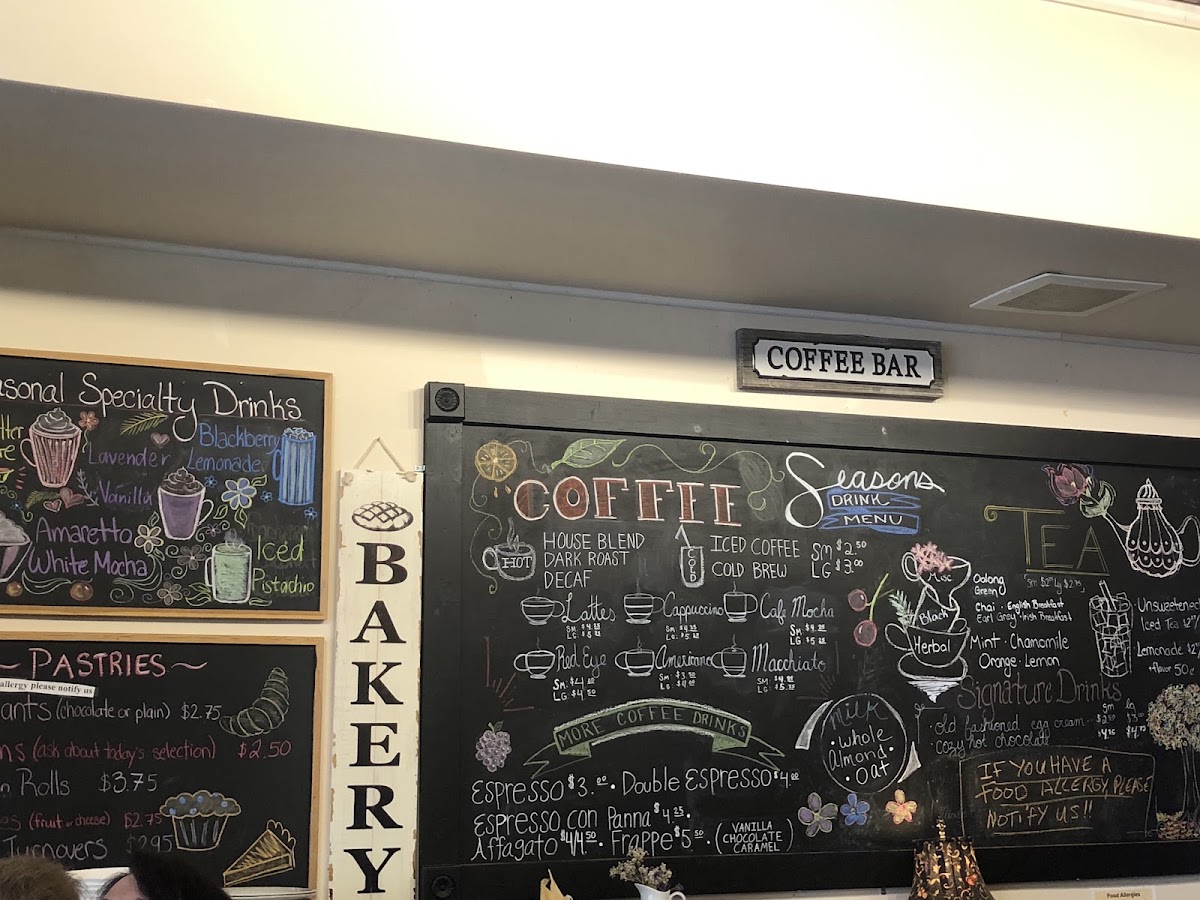 COFFEE BAR
Seasonal Specialty Drinks
Lavender
Vanilla
Blackberry
Lemonade
Amaretto
White Mocha
Iced
Pistachio
~ PASTRIES ~
allergy please notify us
(chocolate or plain) $2.75
(ask about today's selection) $2.50
Rolls $3.75
(fruit or cheese) $2.75
Turnovers $2.95
BAKERY
COFFEE
Seasons
DRINK
MENU
HOT
HOUSE BLEND
DARK ROAST
DECAF
COLD
ICED COFFEE
COLD BREW
SM $2.50
LG $3.00
Lattes
Cappuccino
Cafe Mocha
Red Eye
SM $4.00
LG $4.50
Americano
SM $3.50
LG $4.00
Macchiato
MORE COFFEE DRINKS
Espresso $3.00 · Double Espresso $4.00
Espresso con Panna $4.25 ·
Affagato $4/4.50 · Frappe $5.50 ·
(VANILLA
CHOCOLATE
CARAMEL)
milk
· whole
· almond ·
· oat
TEA
Misc
Black
Herbal
Oolong
Green
Chai · English Breakfast
Earl Gray · Irish Breakfast
Mint · Chamomile
Orange · Lemon
Unsweetened
Iced Tea
Lemonade
flavor 50¢
Signature Drinks
sm lg
· old fashioned egg cream
· cozy hot chocolate
IF YOU HAVE A
FOOD ALLERGY, PLEASE
NOTIFY US!!
Food Allergies